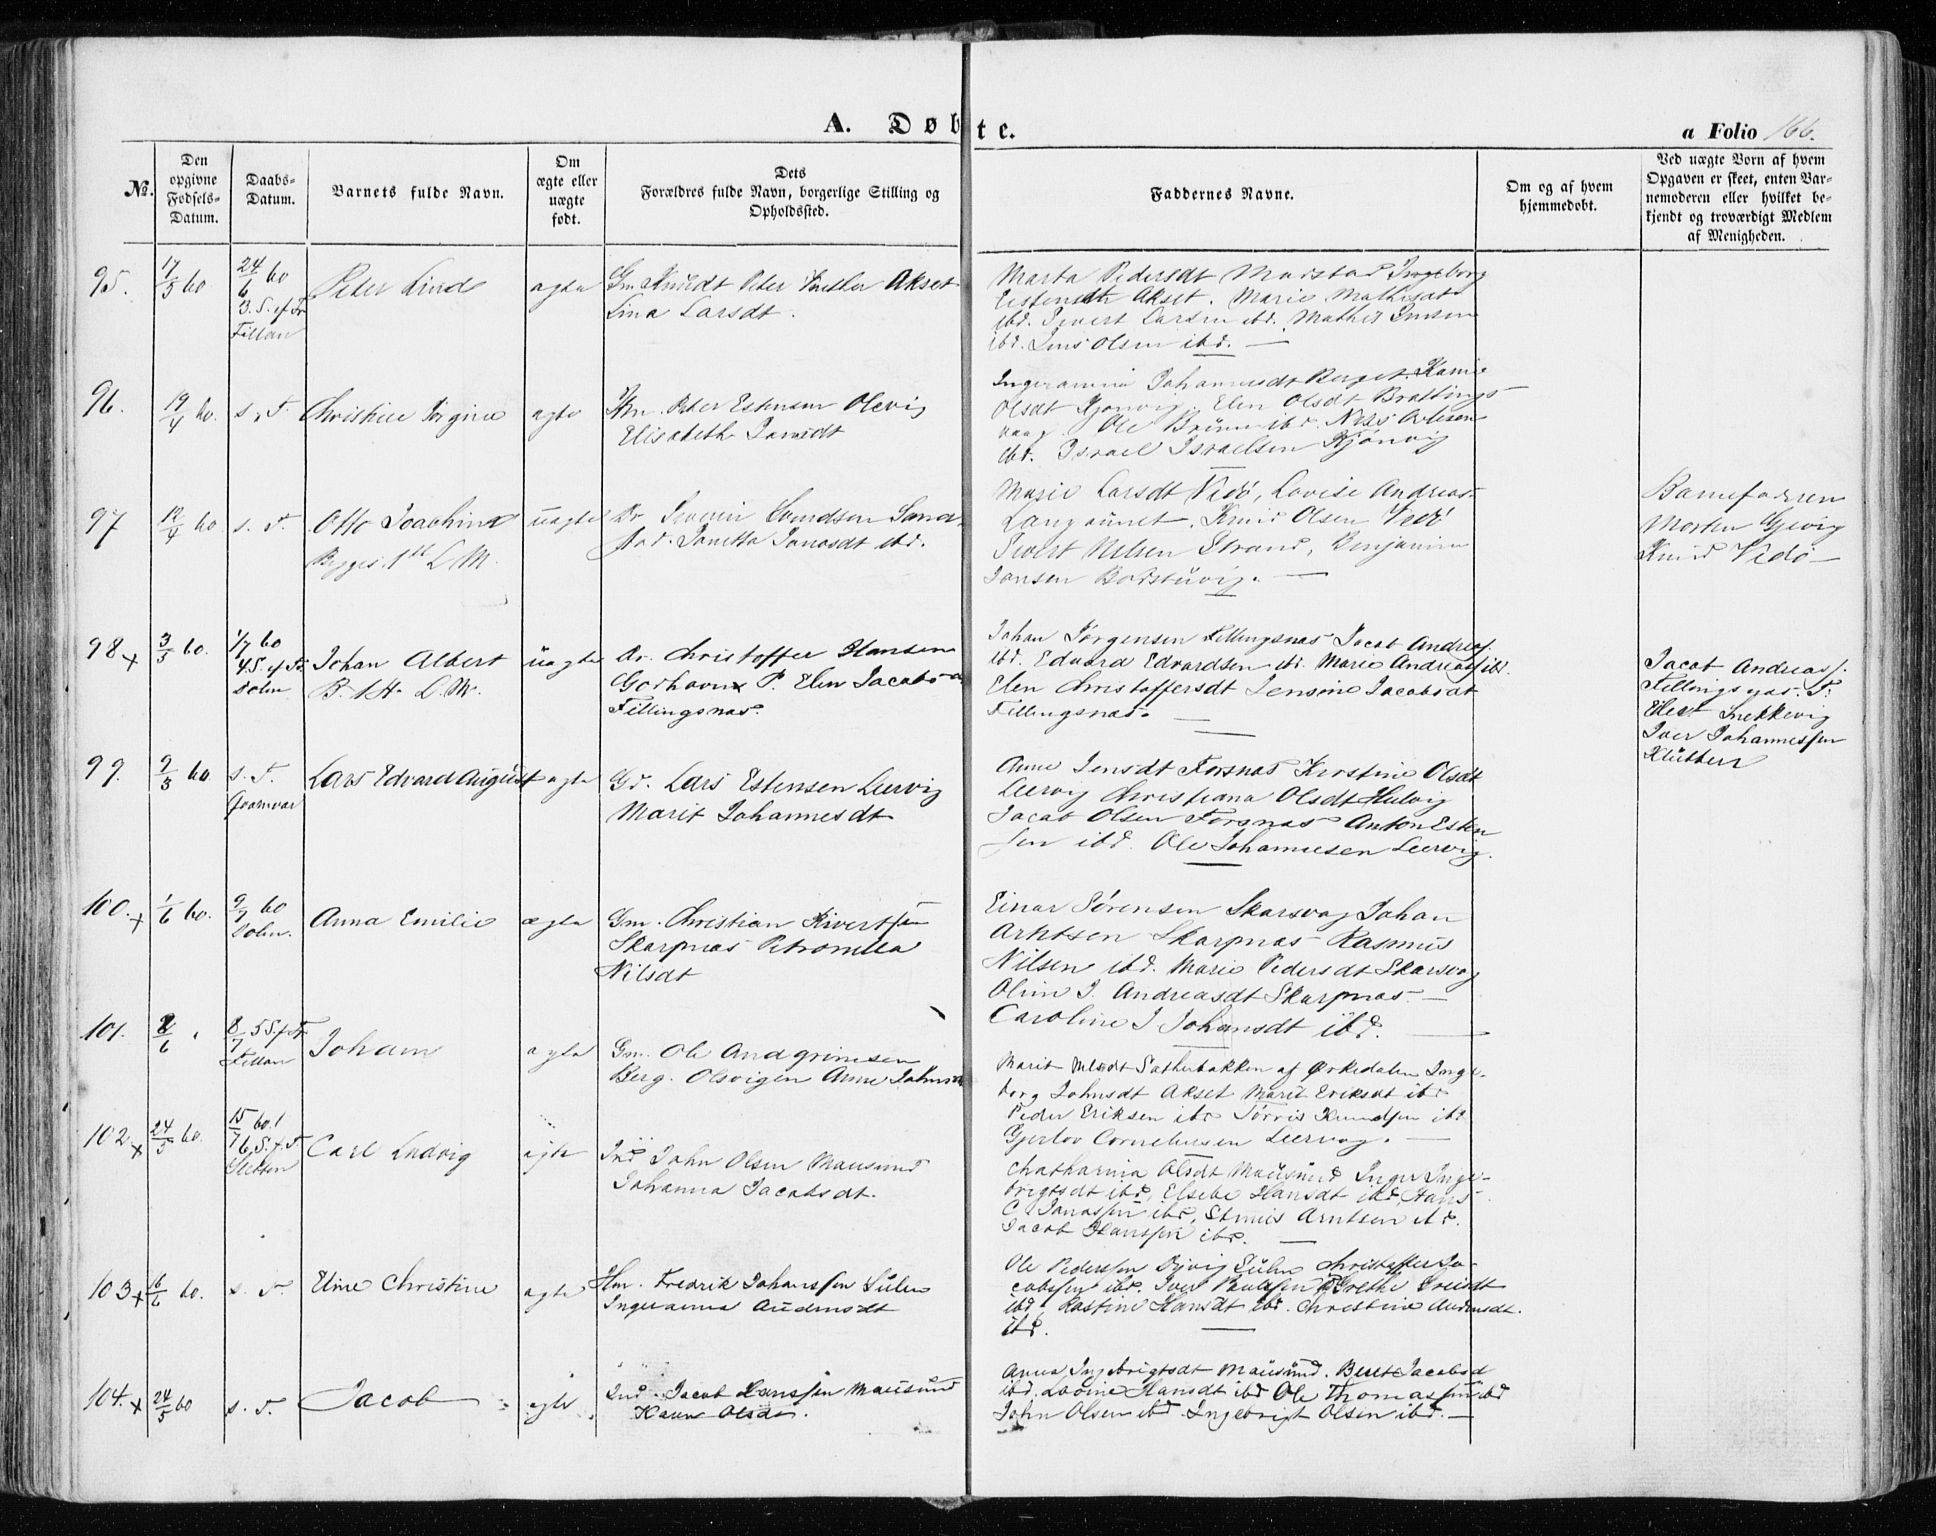 A. Døbte.
a Folio 166.
No.
Den opgivne Fødsels-Datum.
Daabs-Datum.
Barnets fulde Navn.
Om ægte eller uægte født.
Dets Forældres fulde Navn, borgerlige Stilling og Opholdssted.
Faddernes Navne.
Om og af hvem hjemmedøbt.
Ved uægte Born af hvem Opgaven er skeet, enten Barnemoderen eller hvilket bekjendt og troværdigt Medlem af Menigheden.
95. 17/5 60 24/6 60 Peter Lind ægte Akset
3. S. ef Tr Lina Larsdt.
Fillan
Marta Pedersdt Ingeborg
Akset. Marie Mathisdt
ibd. Sivert Larsen ibd. Mathis Jensen
ibd. Jens Olsen ibd. —
96. 19/4 60. s. T. Christine Jørgine ægte Hm. Peter Estensen Olsvig
Elisabeth Jansdt
Johannesdt Berget.
Olsdt Kjønvig, Elen Olsdt Brattings
vaag. Ole ibd. Nils Olsen
ibd. Israel Israelsen Kjønvig
97 12/4 60 s. T. Otto Joachim uægte Severin Svendsen Sand
Begges 1ste L. M. stad. Janetta Jonasdt ibd.
Marie Larsdt Vedø, Lovise Andreas
Knud Olsen Vedø
Sivert Nilsen Strand, Benjamin
Jansen Bodstuvig. —
Barnefaderen
Morten Gjevig
Knud Vedø —
98 x 3/5 60. 1/7 60 Johan Albert uægte Christoffer Hansen
4 S. ef Tr. B. 1ste L. M. P. Elen Jacobsd
Dolm Fillingsnæs.
Johan Jørgensen Fillingsnæs Jacob Andreas.
ibd. Edvard Edvardsen ibd. Marie Andreas ibd.
Elen Christoffersdt Jensine Jacobsdt
Fillingsnæs. —
Jacob Andreass.
Fillingsnæs.
Snekkevig
Iver Johannessen
99. 9/3 60 s. T. Lars Edvard August ægte Gd. Lars Estensen Leervig
Marit Johannesdt
Anne Jensdt Forsnæs Kirstine Olsdt
Leervig Christiana Olsdt Helvig
Jacob Olsen Forsnæs Anton Esten
sen ibd. Ole Johannesen Leervig.
100. x 1/6 60. 9/7 60 Anna Emilie ægte Gm. Christian Sivertsen
Dolm. Skarpnæs Petronella
Nilsdt
Einar Sørensen Skarsvag Johan
Arntsen Skarpnæs Rasmus
Nilsen ibd. Marie Pedersdt Skarsvag
Oline J. Andreasdt Skarpnæs —
Caroline J Johansdt ibd. —
101. 8/6 8/7 5 S. f Tr Johan ægte Gm. Ole Andgrimsen
Fillan Berg. Olsvigen Anne Johnsd
Marit Olsdt Sætherbakken af Ørkedalen Inge-
borg Johnsdt Akset Marit Eriksdt ibd
Peder Eriksen ibd Knudsen ibd
Corneliussen Leervag. —
102 x 24/5 60. 15/7 60 Carl Ludvig ægte Ind John Olsen Mausund
6 S. f. T. Johanna Jacobsdt.
Sletten
Chatharina Olsdt Mausund Inger Inge-
brigtsdt ibd, Elsebe Hansdt ibd, Hans
C. Jonassen ibd, Arntsen ibd.
Jacob Hanssen ibd. —
103 x 16/6 60. s. T. Eline Christine ægte Hm. Fredrik Johanssen Sulen
Ingeranna Audensdt
Ole Pederssen Sulen Christoffer Ja-
cobsen ibd. Iver Paulsen Grethe
ibd. Hansdt ibd. Christine Audensdt.
ibd. —
104. x 24/5 60 s. T. Jacob ægte Ind. Jacob Hanssen Mausund
Karen Olsdt.
Anna Ingebrigtsdt Mausund. Beret Jacobsd
ibd. Lovine Hansdt ibd Ole Thomassen ibd
John Olsen ibd. Ingebrigt Olsen ibd. —